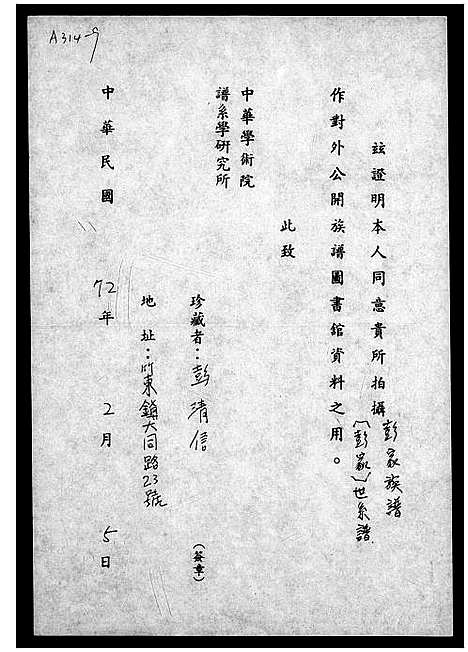 A314-9
茲證明本人同意貴所拍攝彭家族譜
〔彭家〕世系譜
作對外公開族譜圖書館資料之用。
此致
中華學術院
譜系學研究所
珍藏者：彭清信
（簽章）
地址：竹東鎮大同路23號
中華民國72年2月5日